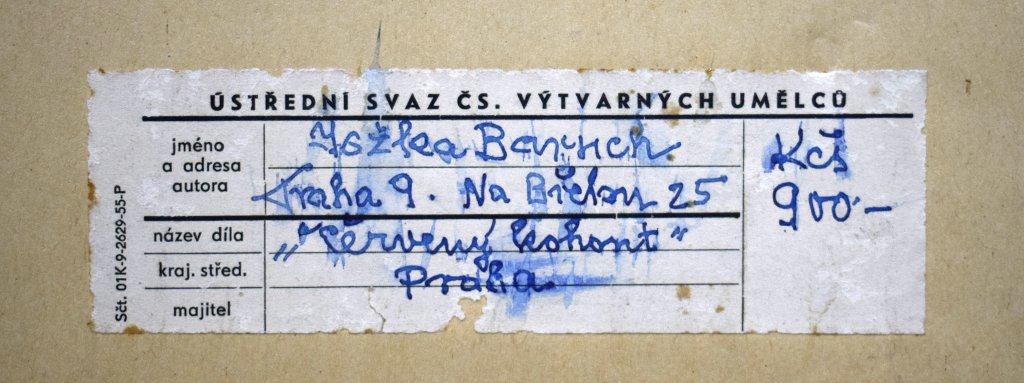 ÚSTŘEDNÍ SVAZ ČS. VÝTVARNÝCH UMĚLCŮ
jméno
a adresa
autora
Jožka Baruch
Praha 9. Na Břehu 25
Kčs
900.-
název díla
„Červený kohout"
kraj. střed.
Praha
majitel
Sčt. 01K-9-2629-55-P